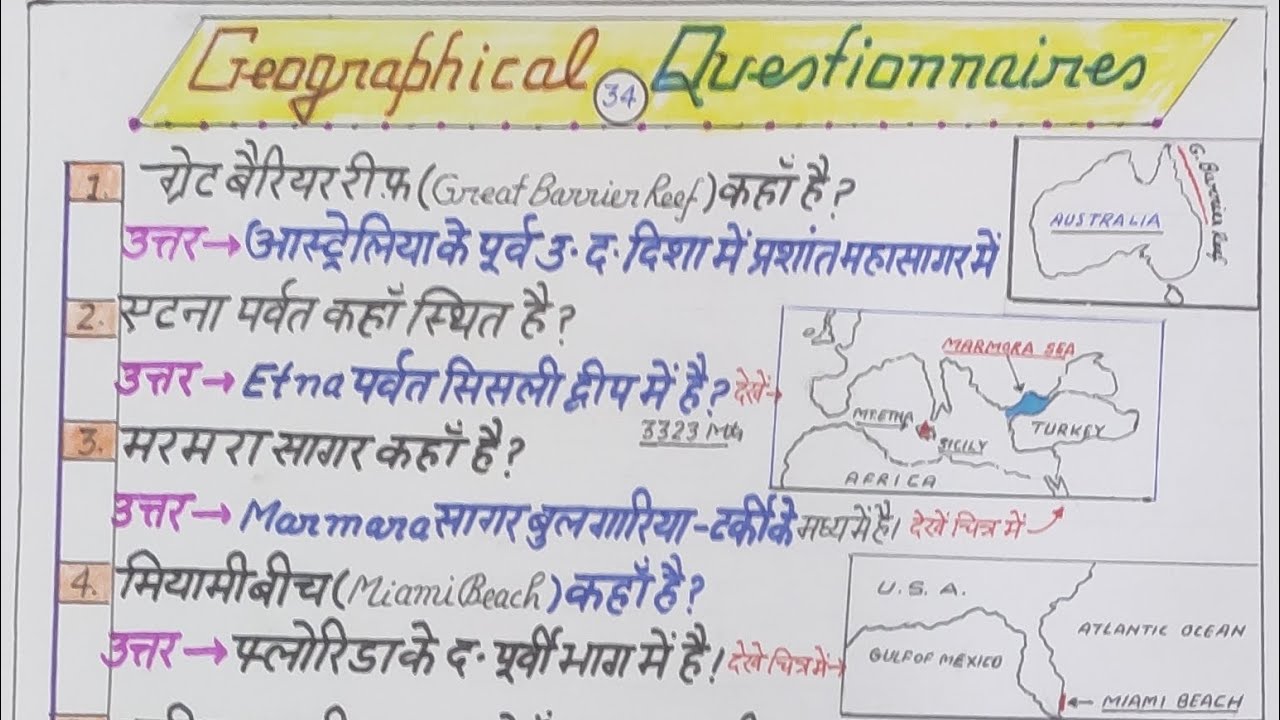 Geographical 34 Questionnaires
1. ग्रेट बैरियर रीफ़ (Great Barrier Reef) कहाँ है?
उत्तर → आस्ट्रेलिया के पूर्व उ. द. दिशा में प्रशांत महासागर में
AUSTRALIA
G. Barrier Reef
2. एटना पर्वत कहाँ स्थित है?
उत्तर → Etna पर्वत सिसली द्वीप में है? देखें →
3323
MARMORA SEA
MT. ETNA
SICILY
TURKEY
AFRICA
3. मरमरा सागर कहाँ है?
उत्तर → Marmara सागर बुलगारिया - टर्की के मध्य में है। देखें चित्र में
4. मियामी बीच (Miami Beach) कहाँ है?
उत्तर → फ्लोरिडा के द. पूर्वी भाग में है। देखें चित्र में →
U. S. A.
ATLANTIC OCEAN
GULF OF MEXICO
← MIAMI BEACH